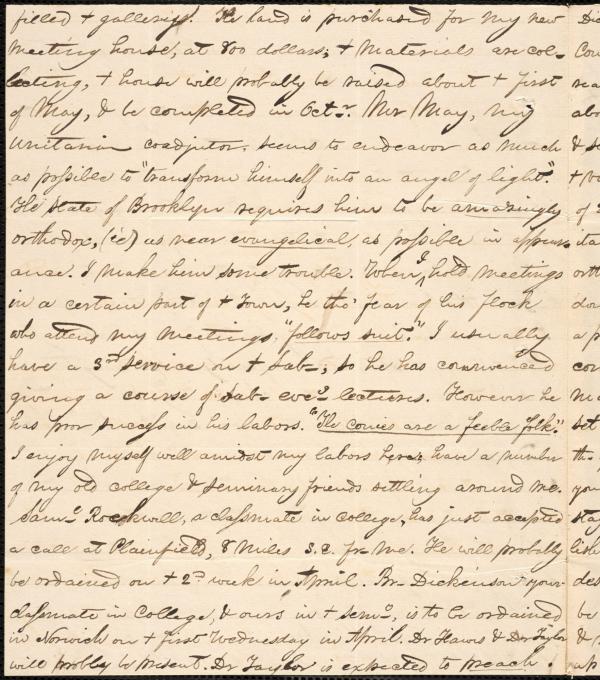 filled + gallerys. The land is purchased for my new
meeting house, at 800 dollars; + materials are col-
lecting, + house will probably be raised about + first
of May, & be completed in Octr. Mr May, my
unitarian coadjutor, seems to endeavor as much
as possible to "transform himself into an angel of light".
The state of Brooklyn requires him to be amazingly
orthodox, (ie) as near evangelical, as possible in appear-
ance. I make him some trouble. When I hold meetings
in a certain part of + Town, he tho' fear of his flock
who attend my meetings, "follows suit." I usually
have a 3rd service on + Sab-, so he has commenced
giving a course of Sab- eveg lectures. However he
has poor success in his labors. "The conies are a feeble folk."
I enjoy myself well amidst my labors here; have a number
of my old college & seminary friends settling around me.
Saml Rockwell, a classmate in college, has just accepted
a call at Plainfield, 8 miles S.E. fr- me. He will probably
be ordained on + 2d week in April. Br- Dickinson your
classmate in College, & ours in + Semy, is to be ordained
in Norwich on + first Wednesday in April. Dr Hawes & Dr Taylor
will probly be present. Dr Taylor is expected to preach.